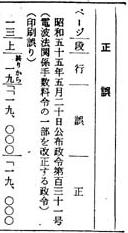 正誤
ページ 段 行 誤 正
昭和五十五年五月二十日公布政令第百三十一号
(電波法関係手数料令の一部を改正する政令)
(印刷誤り)
一三 上 終りから一九 「一九、〇〇〇 「一九、〇〇〇